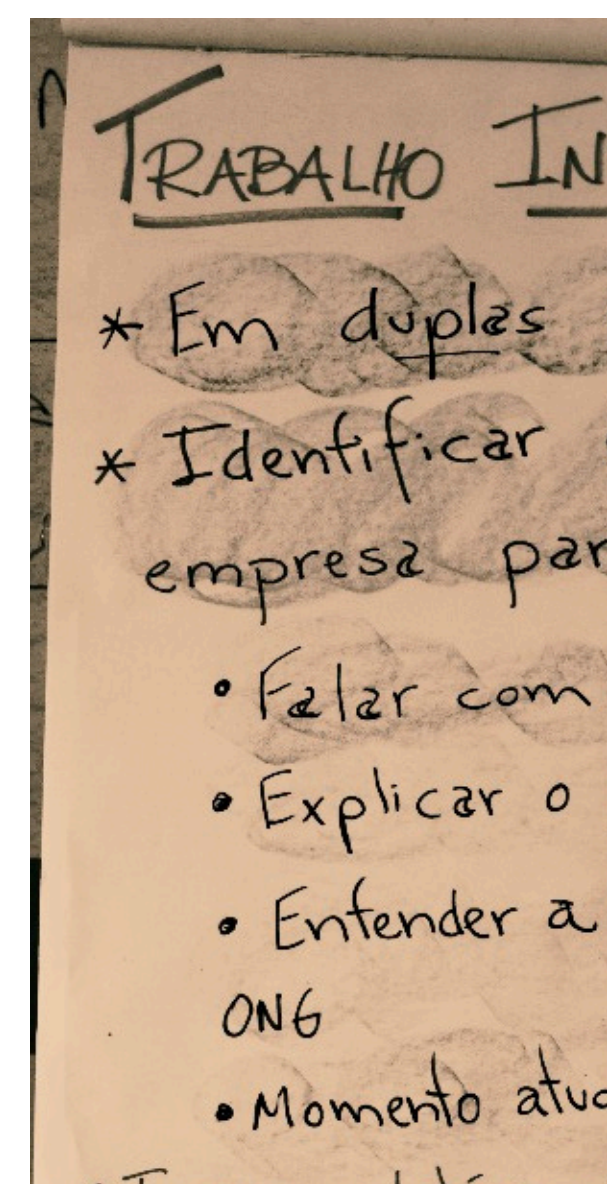 TRABALHO IN
* Em duplas
* Identificar
empresa par
• Falar com
• Explicar o
• Entender a
ONG
• Momento atua